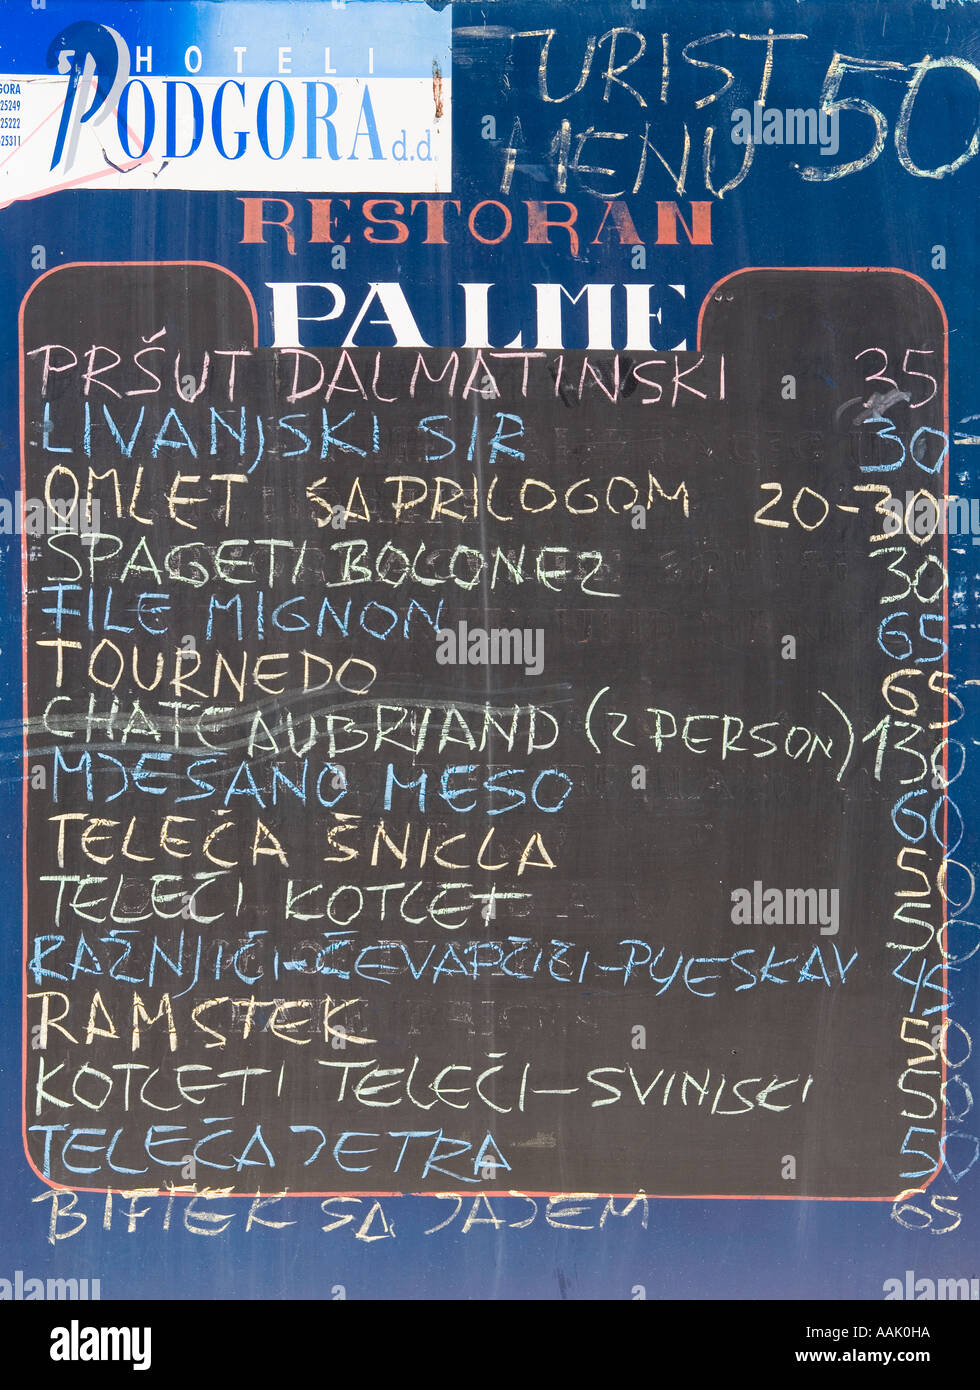 HOTELI
PODGORA d.d.
GORA
25249
25222
25311
TURIST
MENU 50
RESTORAN
PALME
PRŠUT DALMATINSKI 35
LIVANJSKI SIR 30
OMLET SA PRILOGOM 20-30
ŠPAGETI BOLONEZ 30
FILE MIGNON 65
TOURNEDO 65
CHATEAUBRIAND (2 PERSON) 130
MJEŠANO MESO 60
TELEČA ŠNICLA 50
TELEČI KOTLET 50
RAŽNJIČI-ČEVAPČIČI-PLJESKAV 45
RAMSTEK 50
KOTLETI TELEČI-SVINJSKI 50
TELEČA JETRA 50
BIFTEK SA JAJEM 65
alamy
Image ID: AAK0HA
www.alamy.com